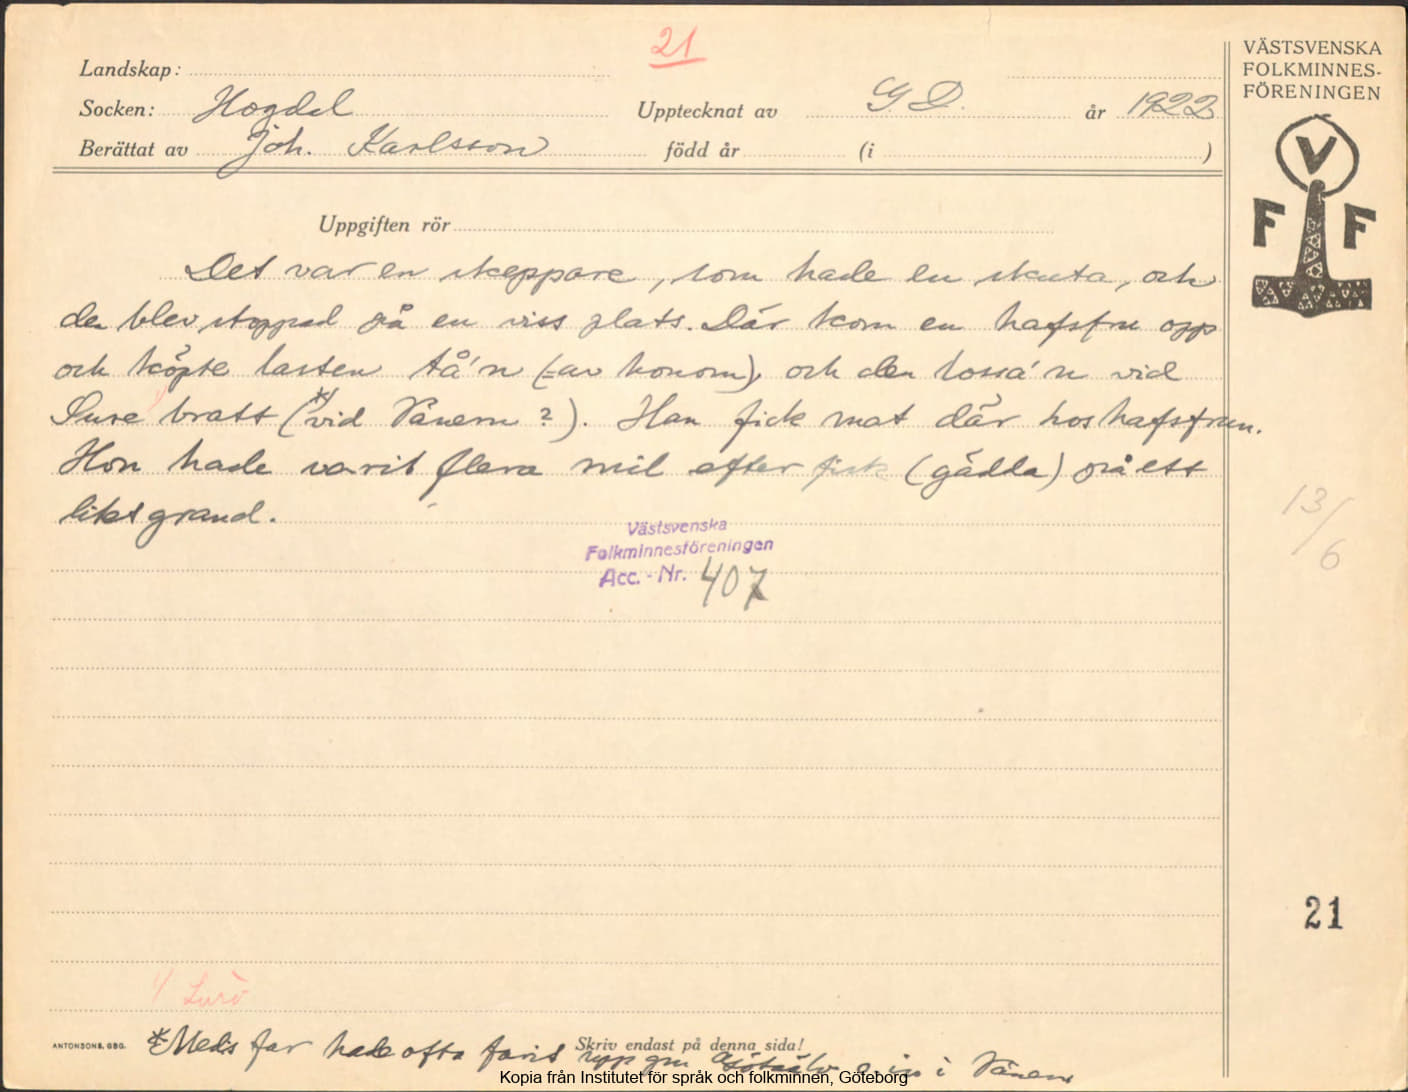 21
VÄSTSVENSKA
FOLKMINNES-
FÖRENINGEN
V
F F
Landskap:
Socken: Hogdal Upptecknat av G D. år 1922
Berättat av Joh. Karlsson född år (i )
Uppgiften rör
Det var en skeppare, som hade en skuta, och
den blev stoppad på en viss plats. Där kom en hafsfru opp
och köpte lasten tå'n (=av honom), och den lossa'n vid
Lure bratt (*vid Vänern ?). Han fick mat där hos hafsfrun.
Hon hade varit flera mil efter fisk (gädda) på ett
litet grand.
Västsvenska
Folkminnesföreningen
Acc. - Nr. 407
13/6
21
1/ Lurö
ANTONSONS, GBG.
Skriv endast på denna sida!
*Meds far hade ofta farit upp gm Götaälv o in i Vänern
Kopia från Institutet för språk och folkminnen, Göteborg